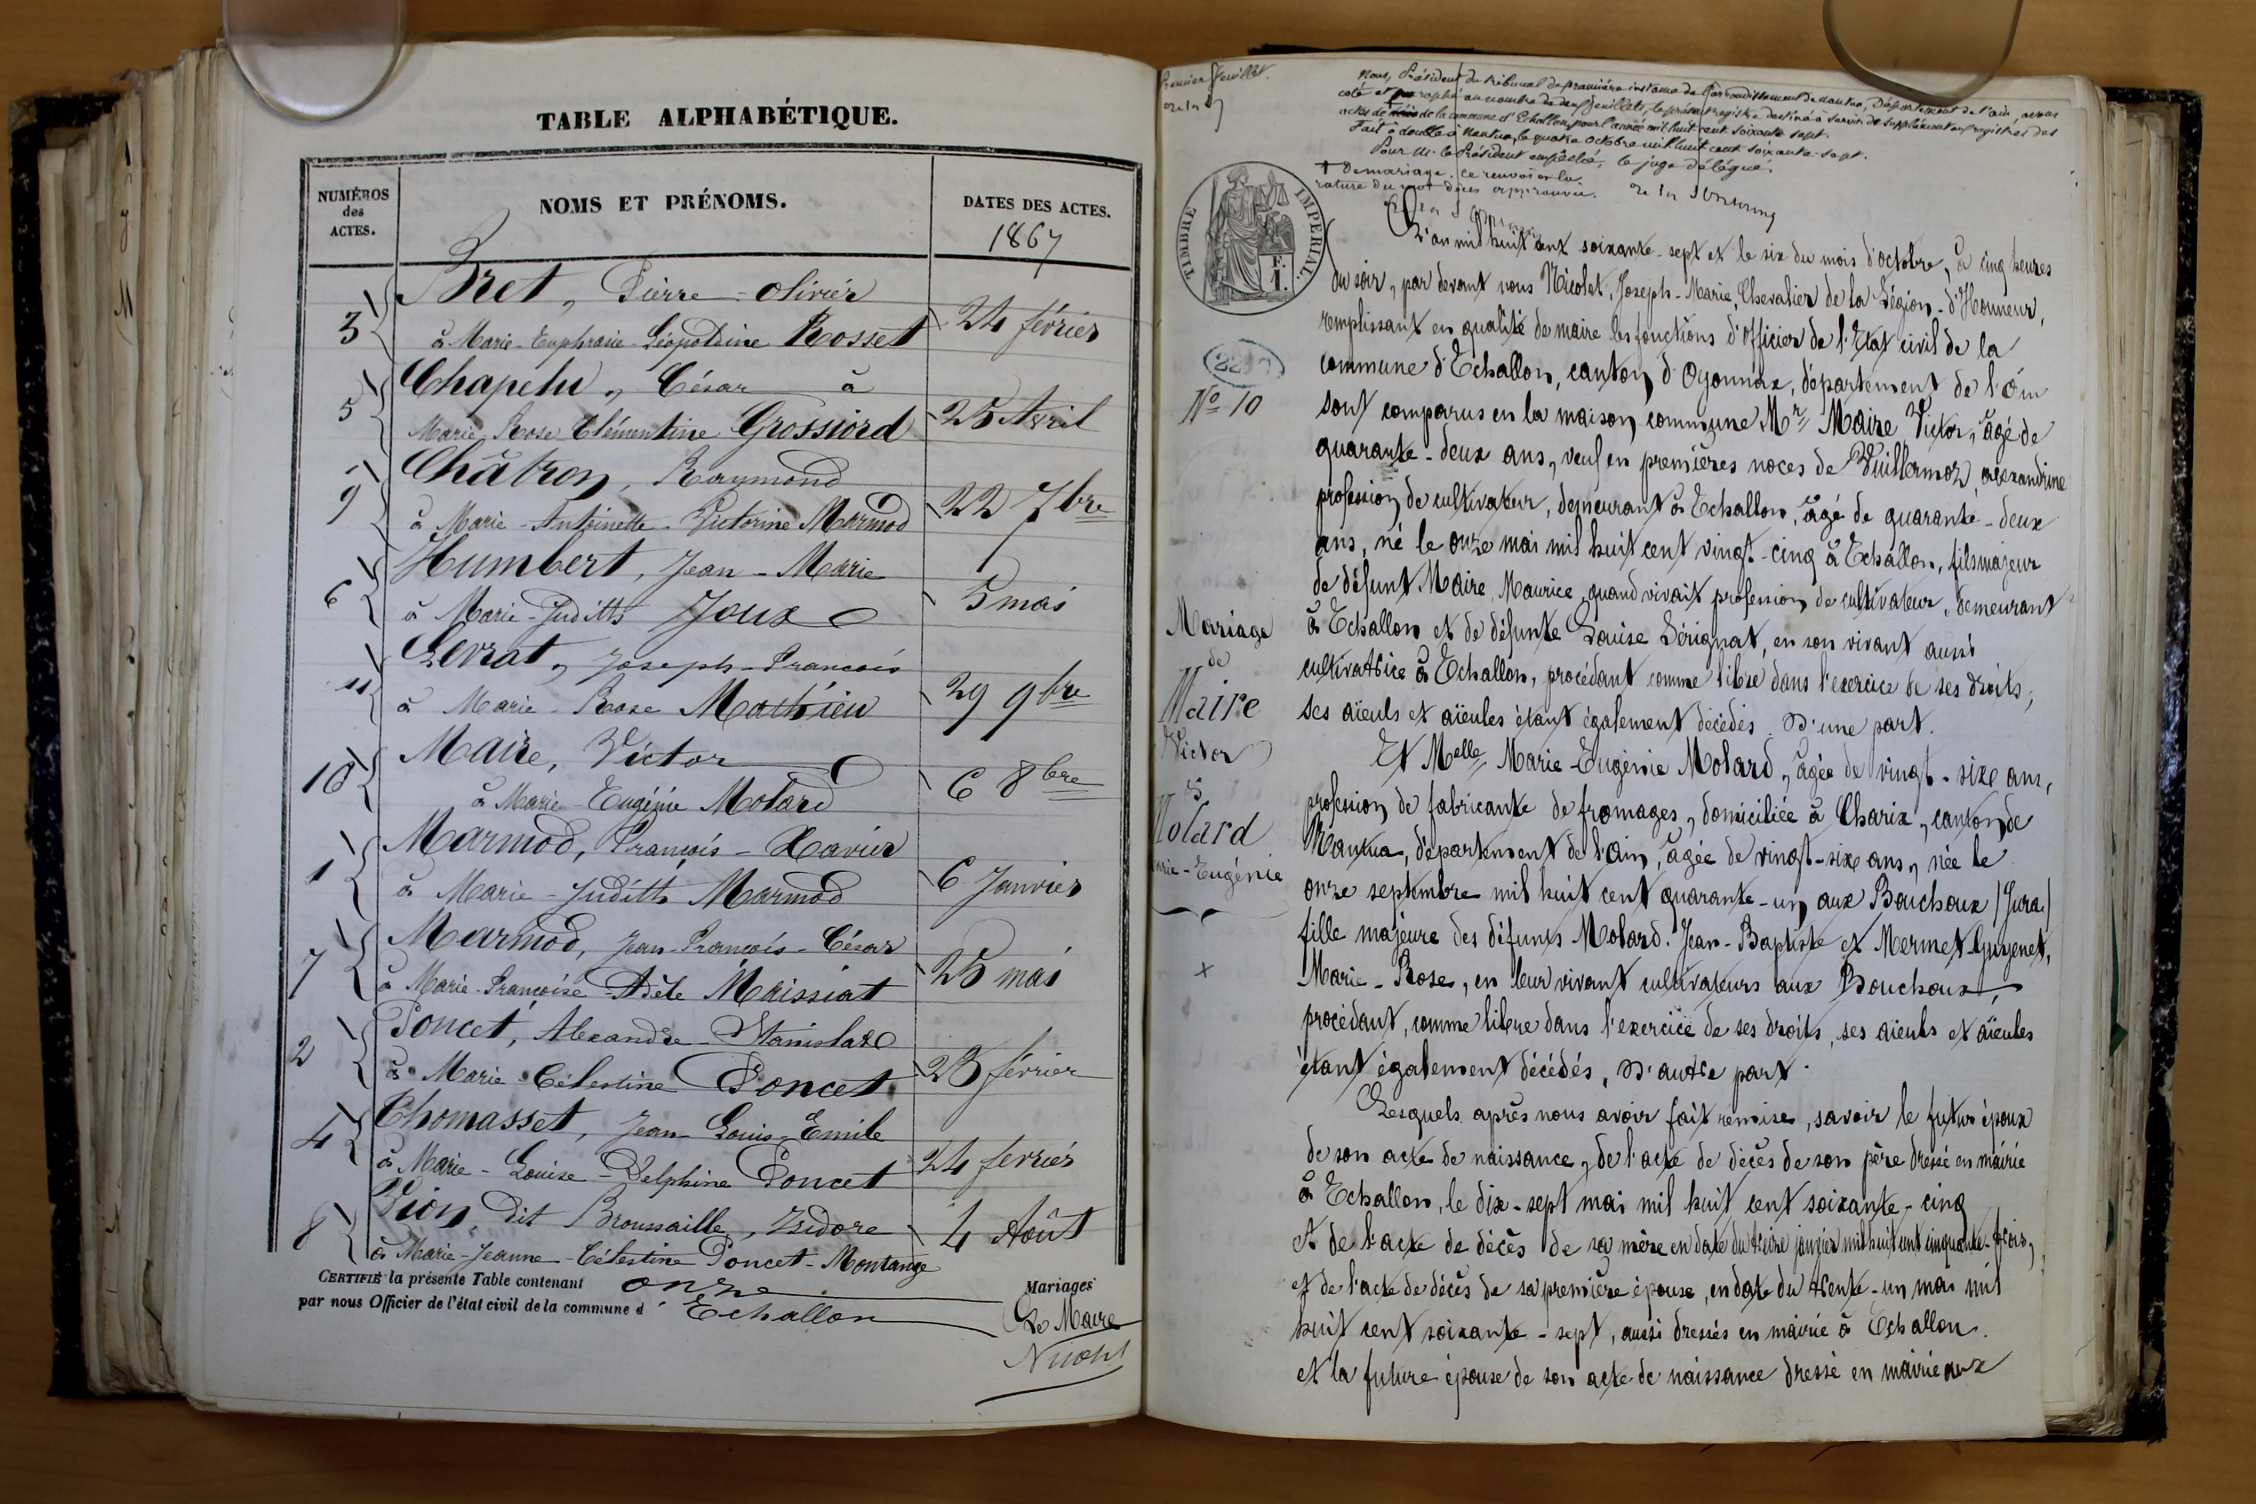 TABLE ALPHABÉTIQUE.
NUMÉROS
des
ACTES.
NOMS ET PRÉNOMS.
DATES DES ACTES.
1867
3 Bret, Pierre-Olivier
à Marie-Euphrasie-Léopoldine Rosset 24 février
5 Chapelu, César à
Marie Rose Clémentine Grossiord 25 Avril
9 Châtron, Raymond
à Marie-Antoinette-Victorine Marmod 22 7bre
6 Humbert, Jean-Marie
à Marie-Judith Joux 5 mai
11 Levrat, Joseph-François
à Marie-Rose Mathieu 29 9bre
10 Maire, Victor
à Marie-Eugénie Molard 6 8bre
1 Marmod, François-Xavier
à Marie-Judith Marmod 6 Janvier
7 Marmod, Jean-François-César
à Marie-Françoise-Adèle Maissiat 25 mai
2 Poncet, Alexandre-Stanislas
à Marie Célestine Poncet 23 février
4 Thomasset, Jean-Louis-Emile
à Marie-Louise-Delphine Poncet 24 février
8 Vion, dit Broussaille, Isidore
à Marie-Jeanne-Célestine Poncet-Montange 4 Août
CERTIFIÉ la présente Table contenant onze Mariages
par nous Officier de l'état civil de la commune d' Echallon
Le Maire
Nicolet
Premier feuillet.
Nous, Président du tribunal de première instance de l'arrondissement de Nantua, Département de l'ain, avons
coté et paraphé au nombre de deux feuillets, le présent registre destiné à servir de supplément au registres des
actes de décès de la commune d'Echallon, pour l'année mil huit cent soixante sept.
Fait à double à Nantua, le quatre octobre mil huit cent soixante-sept.
Pour M. le Président empêché, le juge délégué.
+ de mariage. Ce renvoi et la
rature du mot décès approuvés.
TIMBRE IMPÉRIAL.
F.
1.
L'an mil huit cent soixante-sept et le six du mois d'octobre, à cinq heures
du soir, par devant nous Nicolet, Joseph-Marie, Chevalier de la Légion-d'Honneur,
remplissant en qualité de maire les fonctions d'officier de l'Etat civil de la
commune d'Echallon, canton d'Oyonnax, département de l'Ain
N° 10
sont comparus en la maison commune Mr Maire Victor, âgé de
quarante-deux ans, veuf en premières noces de Vuillermoz, alexandrine
profession de cultivateur, demeurant à Echallon, âgé de quarante-deux
ans, né le onze mai mil huit cent vingt-cinq à Echallon, fils majeur
de défunt Maire, Maurice, quand vivait profession de cultivateur, demeurant
à Echallon et de défunte Louise Sérignat, en son vivant aussi
cultivatrice à Echallon, procédant comme libre dans l'exercice de ses droits,
ses aïeuls et aïeules étant également décédés. D'une part.
Mariage
de
Maire
Victor
&
Molard
Marie-Eugénie
Et Melle Marie-Eugénie Molard, âgée de vingt-six ans,
profession de fabricante de fromages, domiciliée à Charix, canton de
Nantua, département de l'ain, âgée de vingt-six ans, née le
onze septembre mil huit cent quarante-un aux Bouchoux (Jura)
fille majeure des défunts Molard. Jean-Baptiste et Mermet-Guyenet,
Marie-Rose, en leur vivant cultivateurs aux Bouchoux,
procédant, comme libre dans l'exercice de ses droits, ses aïeuls et aïeules
étant également décédés, D'autre part.
Lesquels après nous avoir fait remise, savoir le futur époux
de son acte de naissance, de l'acte de décès de son père dressé en mairie
à Echallon, le dix-sept mai mil huit cent soixante-cinq
et de l'acte de décès de sa mère en date du treize janvier mil huit cent cinquante-trois,
et de l'acte de décès de sa première épouse, en date du trente-un mai mil
huit cent soixante-sept, aussi dressés en mairie à Echallon.
et la future épouse de son acte de naissance dressé en mairie aux